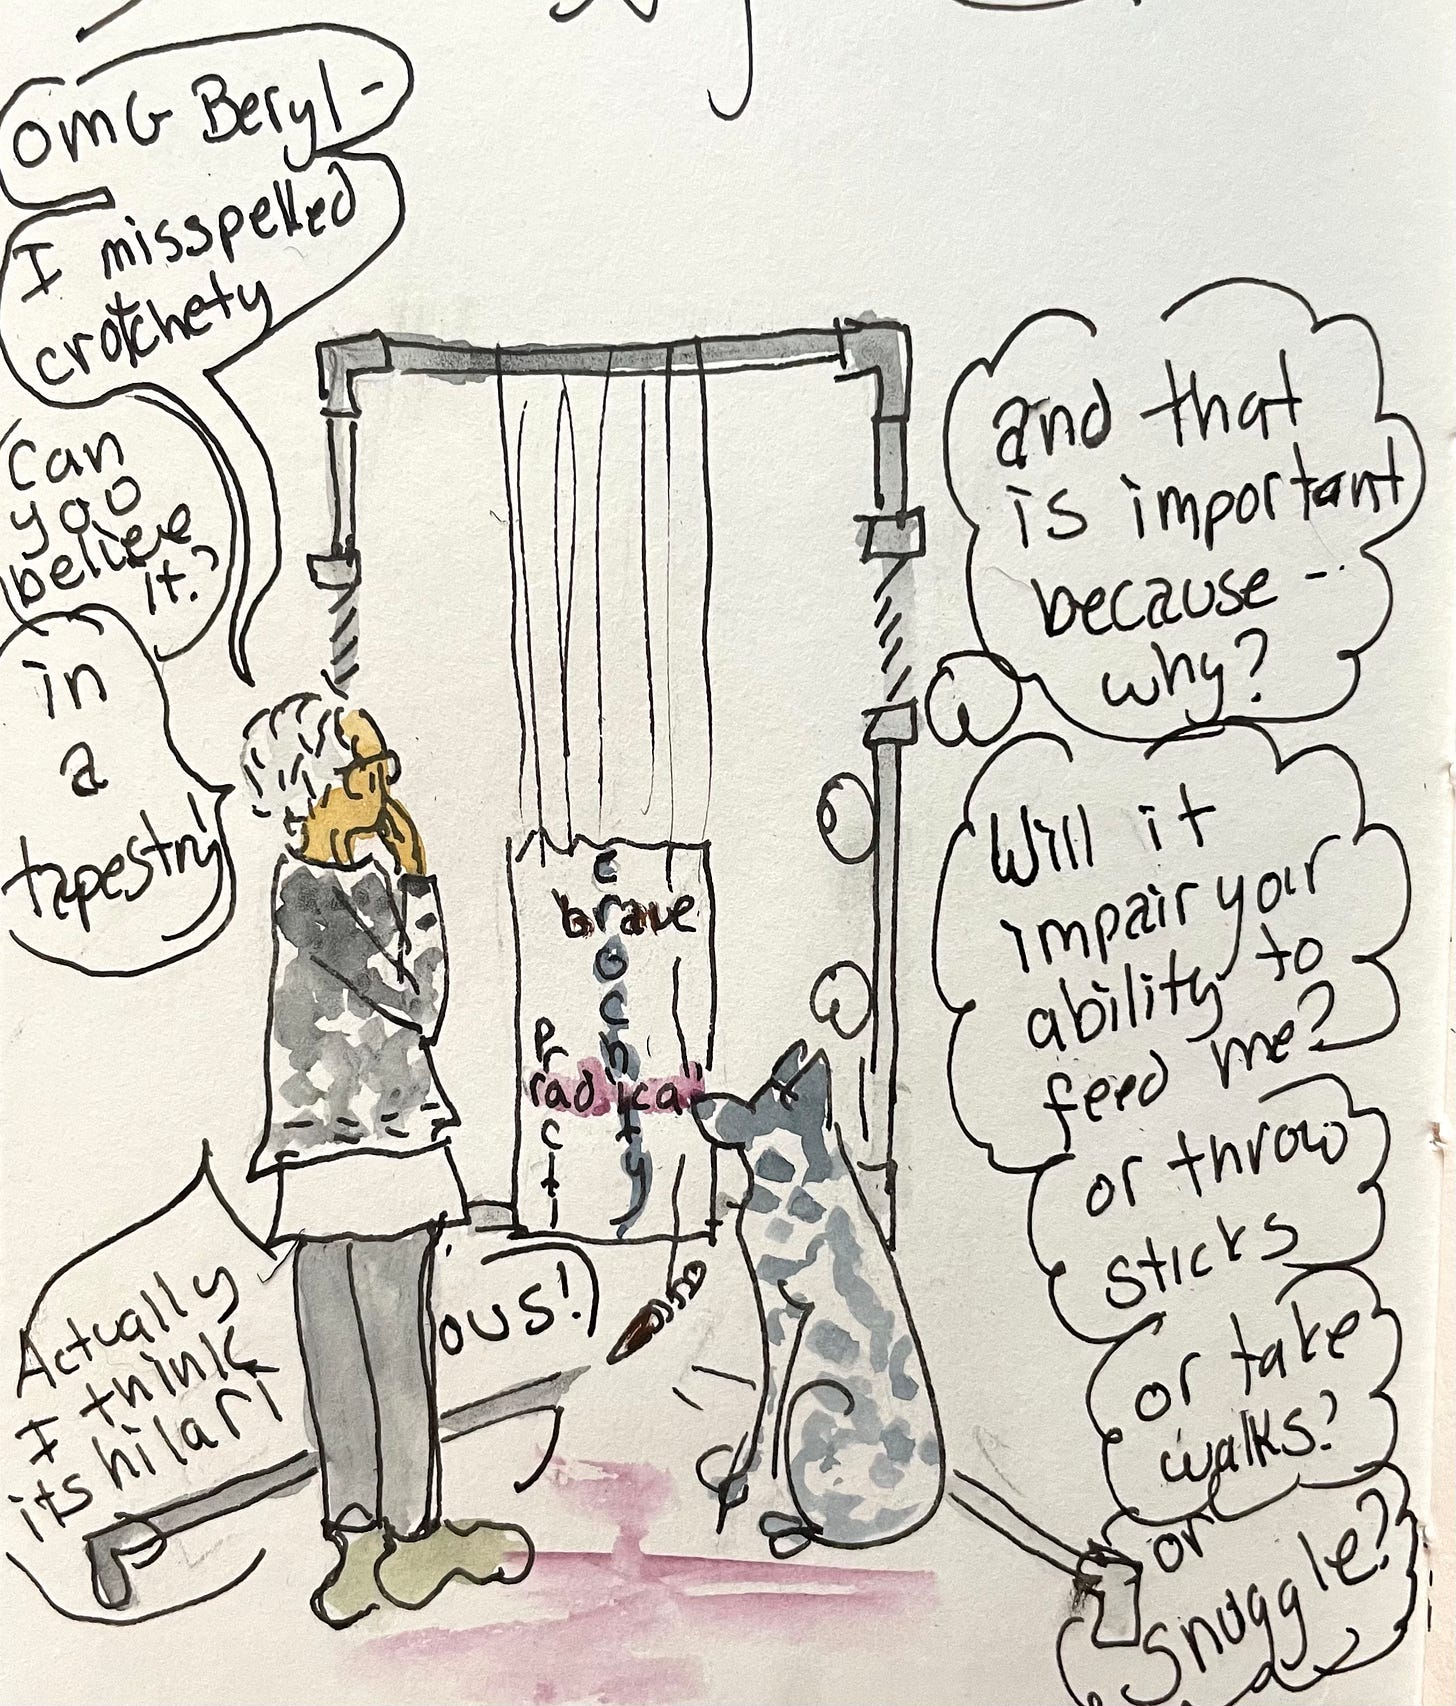 omG Beryl-
I misspelled
crotchety
Can
you
believe
it?
in
a
tapestry!
and that
is important
because --
why?
Will it
impair your
ability to
feed me?
or throw
sticks
or take
walks?
or
snuggle?
c
brave
o
c
h
P
r
radical
c
t
t
y
Actually
I think
its hilari
ous!)